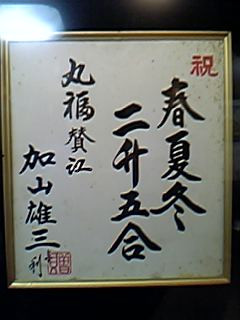 祝
春夏冬
二升五合
丸福賛江
加山雄三
利